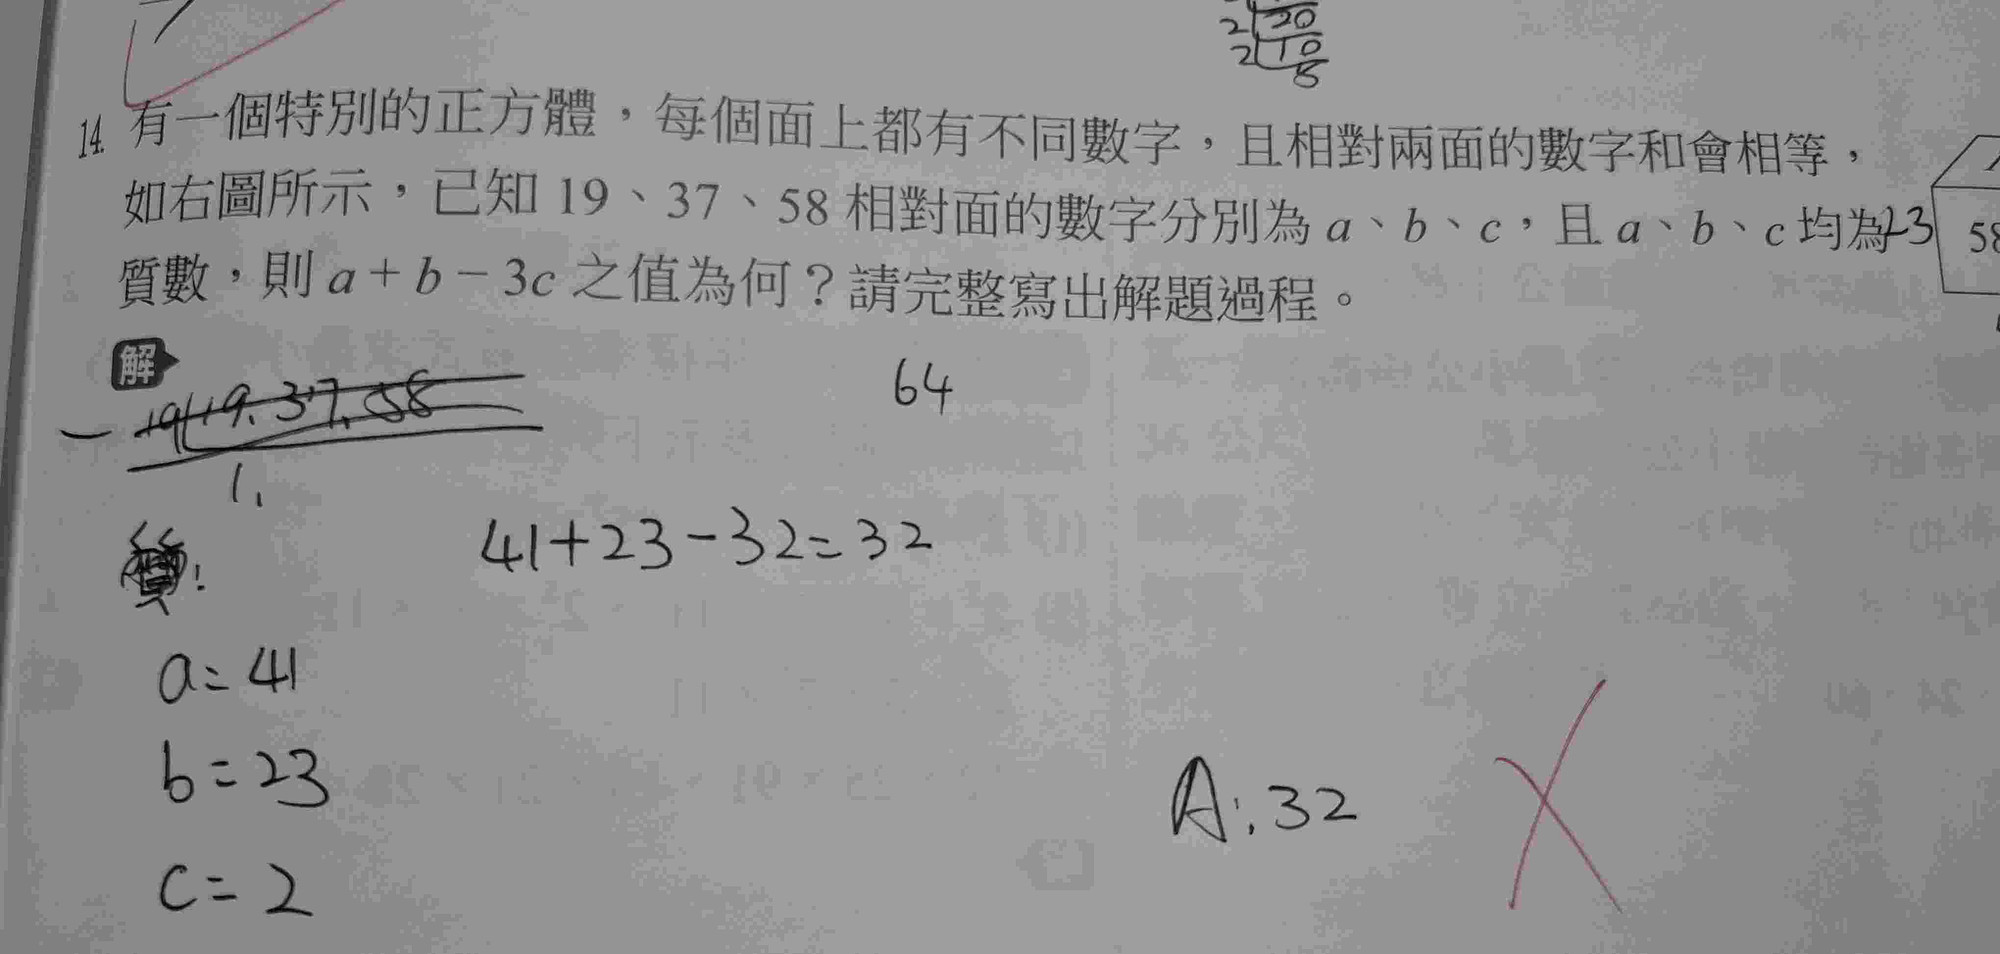 2 20
2 10
5
14. 有一個特別的正方體，每個面上都有不同數字，且相對兩面的數字和會相等，
如右圖所示，已知 19、37、58 相對面的數字分別為 a、b、c，且 a、b、c 均為
質數，則 a + b − 3c 之值為何？請完整寫出解題過程。
23
58
解
19 19. 37. 58
1.
64
質:
41+23-32=32
a=41
b=23
c=2
A:32